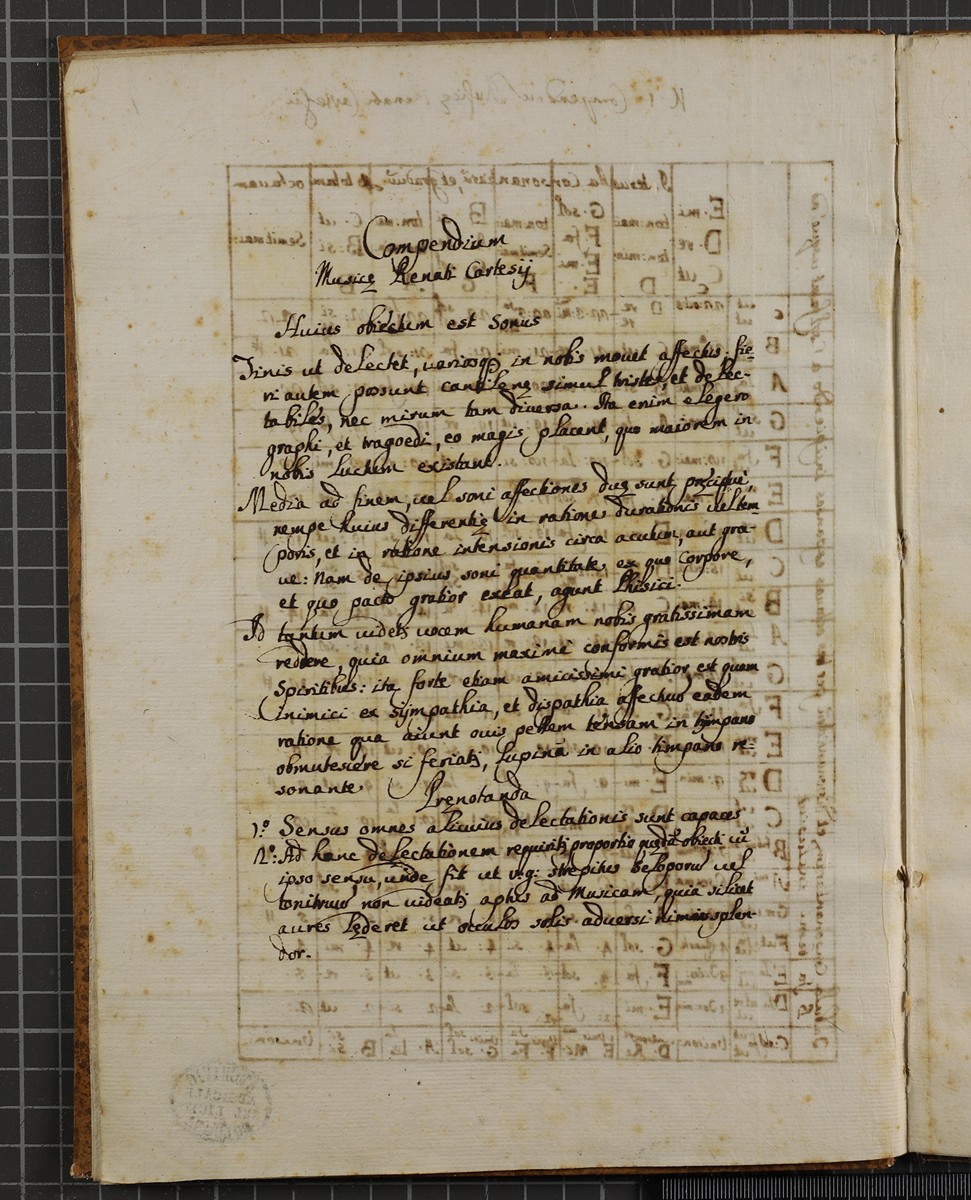 Compendium
Musicę Renati Cartesij
Huius obiectum est Sonus
Finis ut delectet, variosq; in nobis moveat affectus. fie-
ri autem possunt cantilenę simul tristes, et delec-
tabiles, nec mirum tam diversa. Ita enim elegeio
graphi, et tragoedi, eo magis placent, quo maiorem in
nobis luctum excitant.
Media ad finem, vel soni affectiones duę sunt pręcipuè,
nempe huius differentię in ratione durationis vel tem
poris, et in ratione intensionis circa acutum, aut gra-
ue: Nam de ipsius soni quantitate, ex quo corpore,
et quo pacto gratior exeat, agunt Phisici.
Id tantum uidetr uocem humanam nobis gratissimam
reddere, quia omnium maximè conformis est nostris
Spiritibus: ita forte etiam amicissimi gratior est quam
inimici ex sympathia, et dispathia affectuũ eadem
ratione qua aiunt ouis pellem tensam in timpano
obmutescere si feriatr, lupinã in alio timpano re-
sonante.
Pręnotanda
1.º Sensus omnes alicuius delectationis sunt capaces
2.º: Ad hanc delectationem requiritr proportio quędã obiecti cũ
ipso sensu, unde fit ut v:g: strepitus scloporũ vel
tonitruũ non uideatr aptus ad Musicam, quia scilicet
aures lęderet ut occulos solis aduersi nimius splen-
dor.